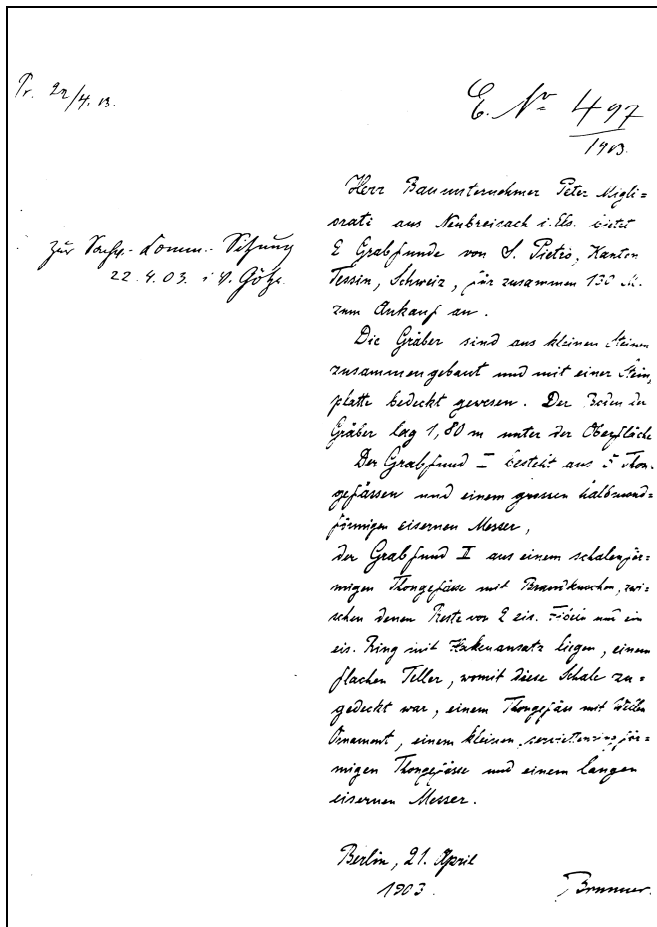 Pr. 22/4.03.
E. Nr 497
1903.
zur Sachv.-Komm.-Sitzung
22.4.03. i.V. Götze
Herr Bauunternehmer Peter Migli=
orati aus Neubreisach i. Els. bietet
2 Grabfunde von S. Pietro, Kanton
Tessin, Schweiz, für zusammen 130 M.
zum Ankauf an.
Die Gräber sind aus kleinen Steinen
zusammengebaut und mit einer Stein-
platte bedeckt gewesen. Der Boden der
Gräber lag 1,80 m unter der Oberfläche
Der Grabfund I besteht aus 5 Thon-
gefässen und einem grossen halbmond=
förmigen eisernen Messer,
der Grabfund II aus einem schalenför=
migen Thongefässe mit Brandknochen, zwi=
schen denen Reste von 2 eis. Fibeln und ein
eis. Ring mit Hakenansatz liegen, einem
flachen Teller, womit diese Schale zu=
gedeckt war, einem Thongefäss mit Wellen
Ornament, einem kleinen serviettenringför=
migen Thongefässe und einem langen
eisernen Messer.
Berlin, 21. April
1903.
Brunner.